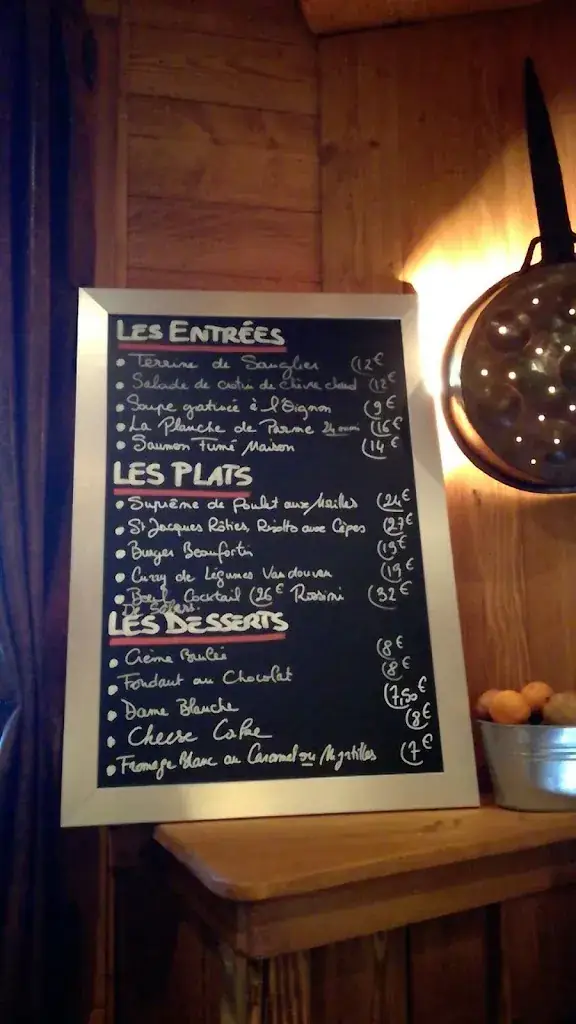 LES ENTRÉES
• Terrine de Sanglier (12€
• Salade de crotin de chèvre chaud (12€
• Soupe gratinée à l'Oignon (9€
• La Planche de Parme 24 mois (16€
• Saumon Fumé Maison (14€
LES PLATS
• Suprême de Poulet aux Morilles (24€
• St Jacques Rôties, Risotto aux Cèpes (27€
• Burger Beaufortin (19€
• Curry de Légumes Vandouvan (19€
• Boeuf Cocktail (26€ Rossini (32€
De Salers.
LES DESSERTS
• Crème Brulée (8€
• Fondant au Chocolat (8€
• Dame Blanche (7,50€
• Cheese Cake (8€
• Fromage Blanc au Caramel ou Myrtilles (7€